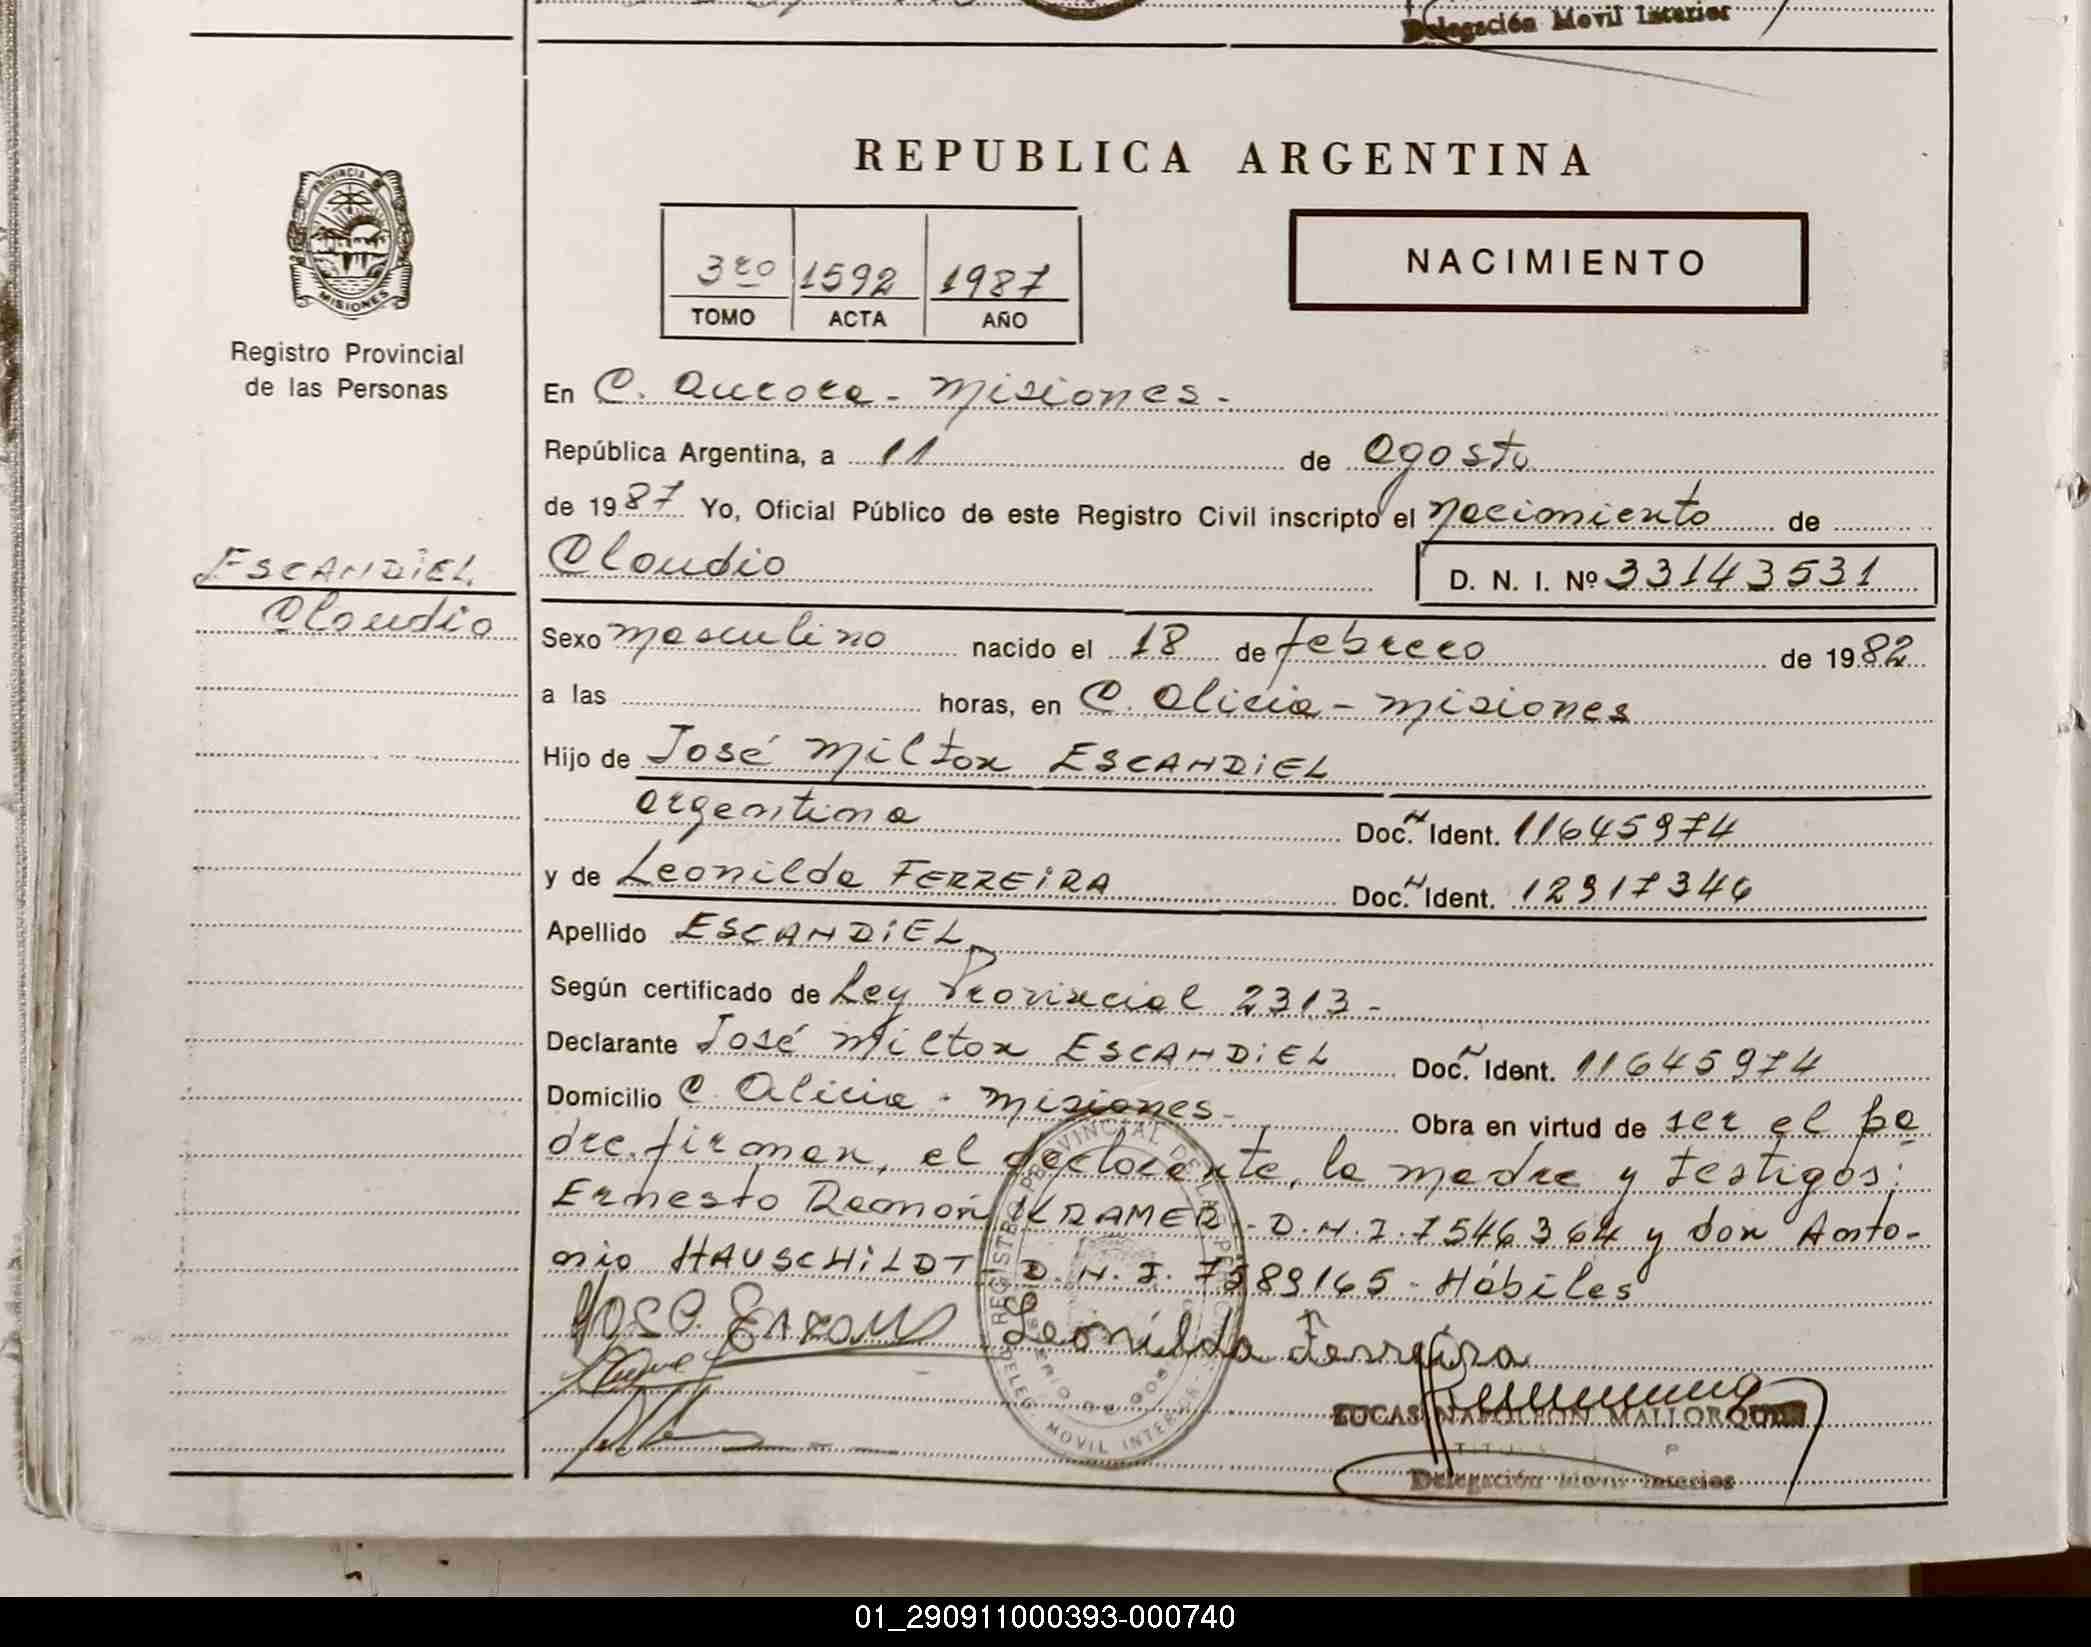 Delegación Movil Interior
REPUBLICA ARGENTINA
PROVINCIA DE
MISIONES
Registro Provincial
de las Personas
3ro 1592 1987
TOMO ACTA AÑO
NACIMIENTO
En C. Aurora - Misiones -
República Argentina, a 11 de Agosto
de 1987 Yo, Oficial Público de este Registro Civil inscripto el Nacimiento de
ESCANDIEL
Claudio
Claudio D. N. I. Nº 33143531
Sexo masculino nacido el 18 de febrero de 1982
a las horas, en C. Alicia - Misiones
Hijo de José Milton ESCANDIEL
argentina Doc. N Ident. 11645974
y de Leonilda FERREIRA Doc. N Ident. 12917346
Apellido ESCANDIEL
Según certificado de Ley Provincial 2313 -
Declarante José Milton ESCANDIEL Doc. N Ident. 11645974
Domicilio C. Alicia - Misiones - Obra en virtud de ser el pa
dre. firman, el declarante, la madre y testigos:
Ernesto Ramón KRAMER - D.N.I. 7546364 y don Anto-
nio HAUSCHILDT - D.N.I. 7589165 - Hábiles
José
Leonilda Ferreira
REGISTRO PROVINCIAL DE LAS PERSONAS
MINISTERIO DE GOBIERNO
DELEG. MOVIL INTERIOR
LUCAS NAPOLEON MALLORQUIN
Delegación Movil Interior
01_290911000393-000740